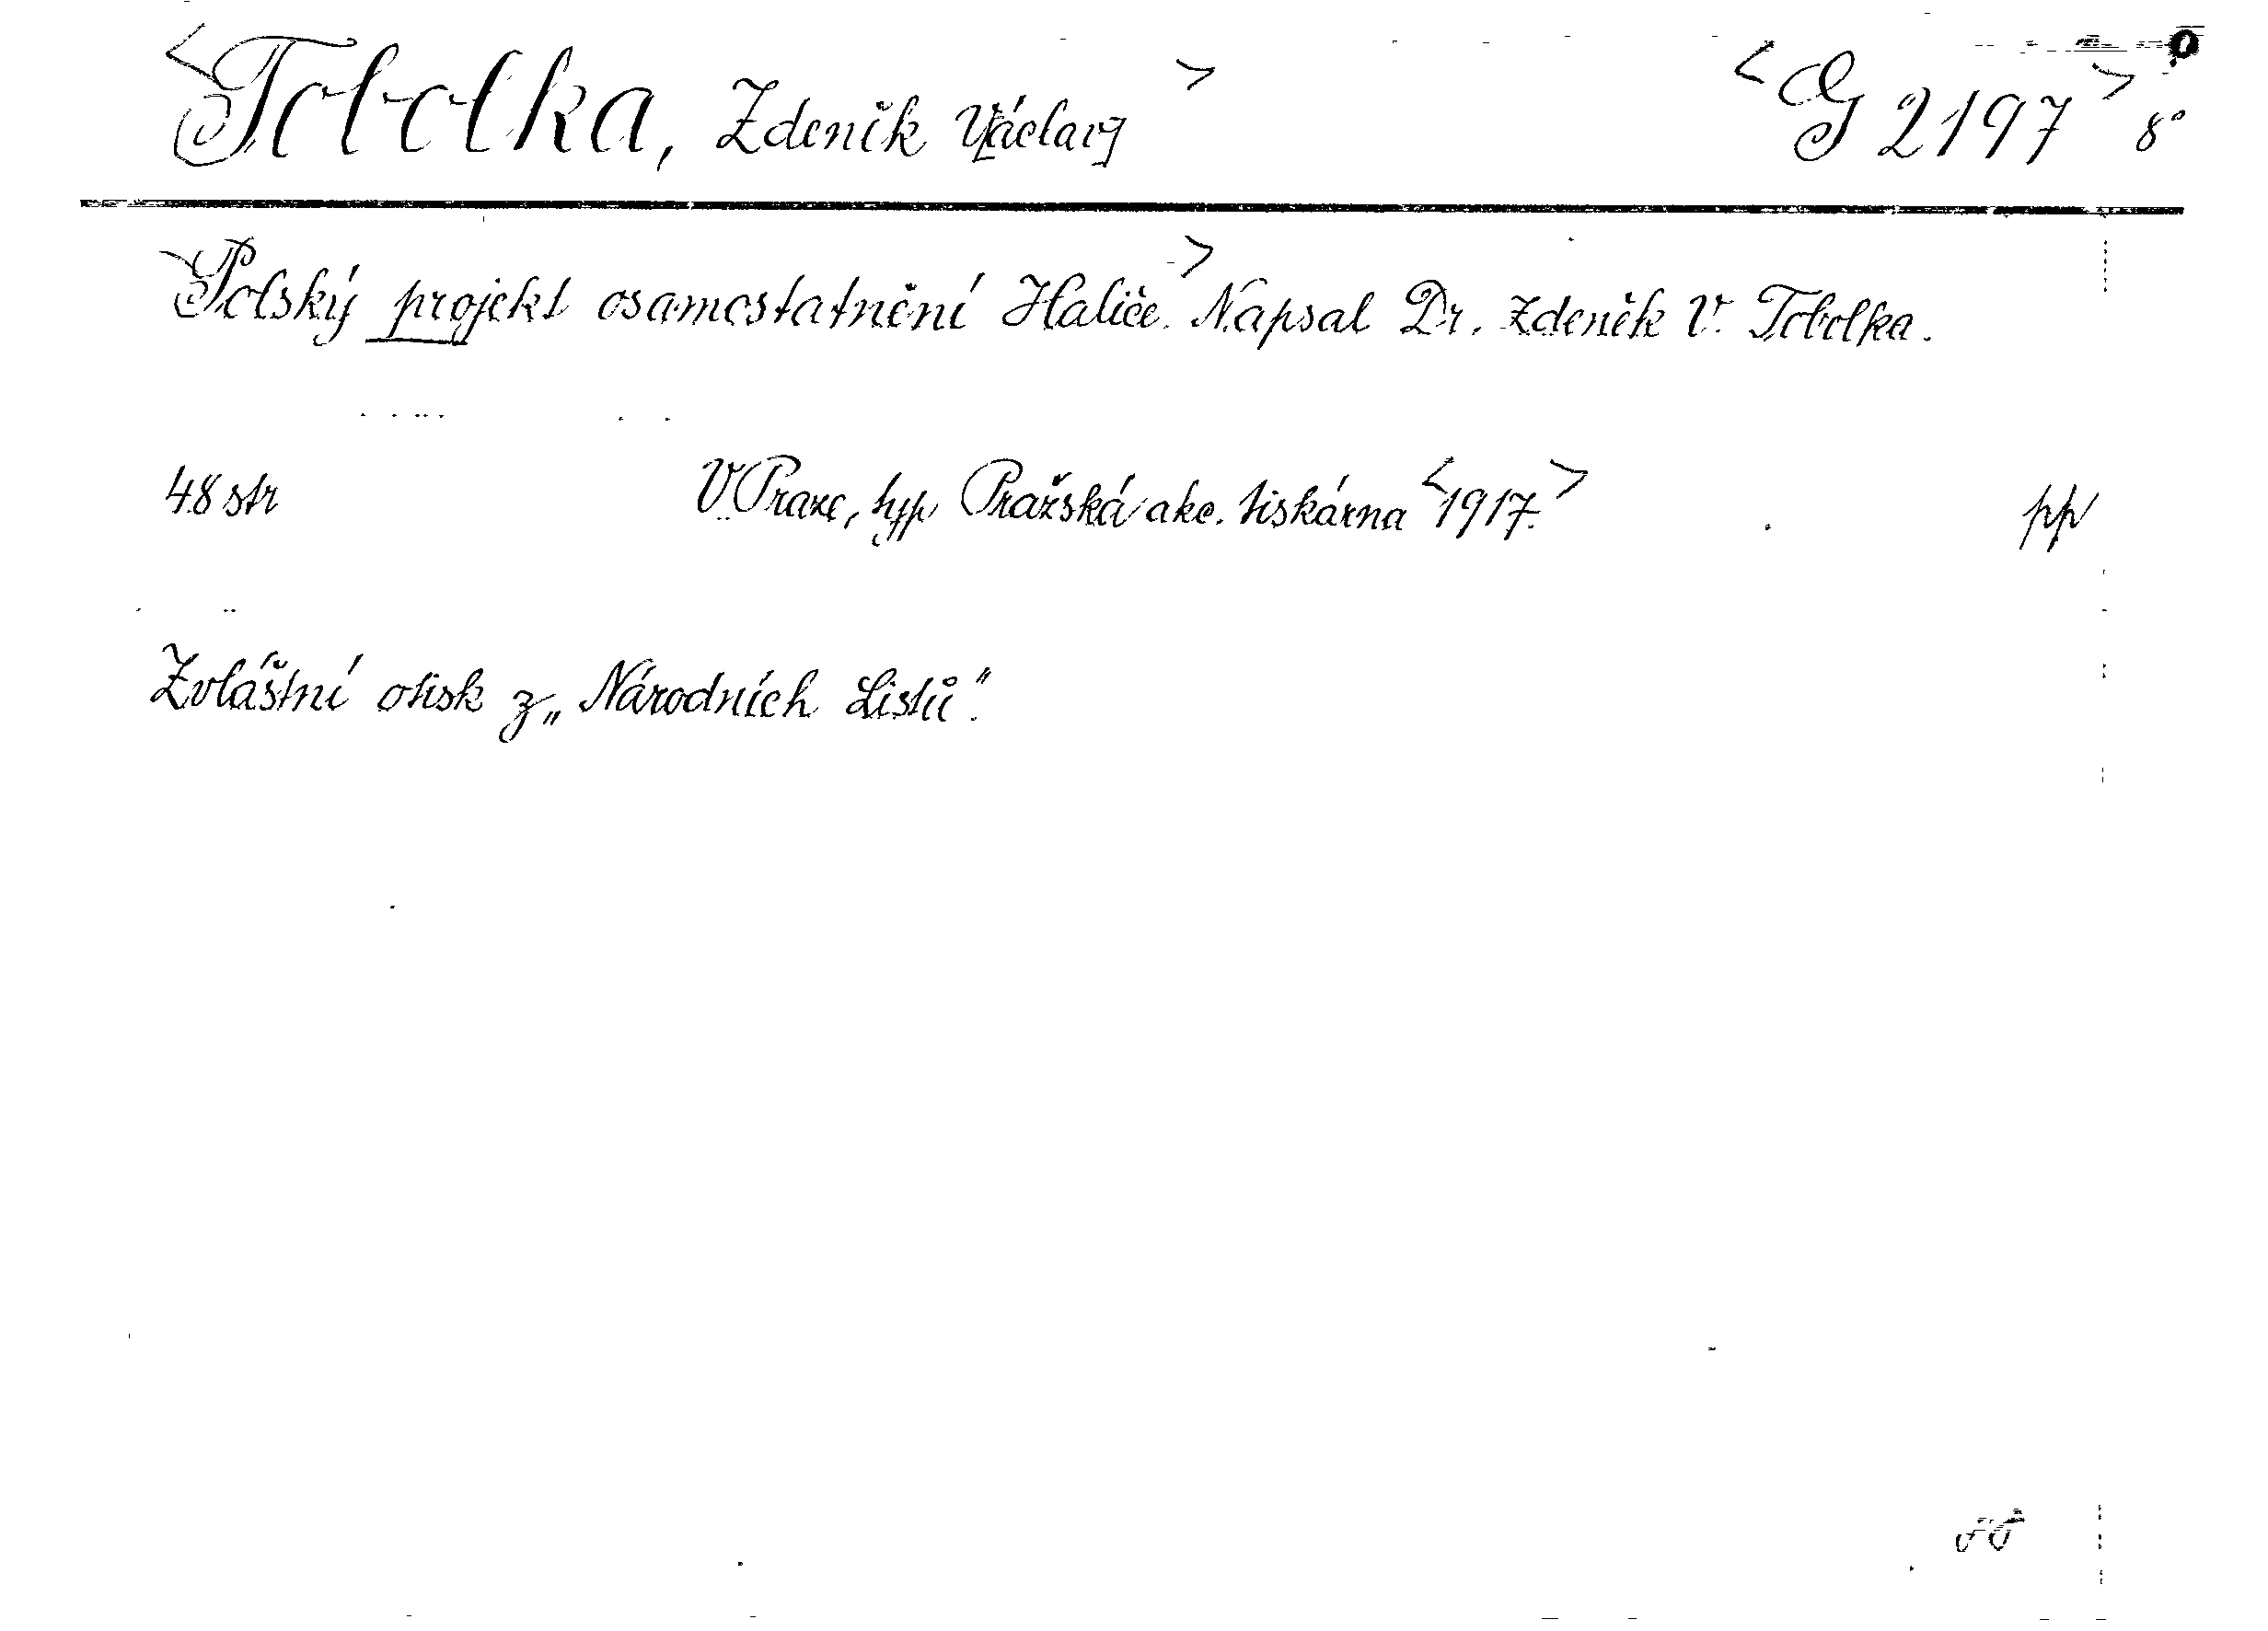 <Tobolka, Zdeněk V[áclav]> <G 2197> 8°
<Polský projekt osamostatnění Haliče.> Napsal Dr. Zdeněk V. Tobolka.
48 str V Praze, typ Pražská akc. tiskárna <1917.> pp
Zvláštní otisk z „Národních Listů".